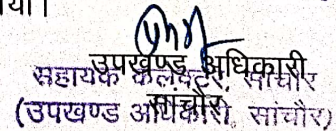 या।
उपखण्ड अधिकारी
सहायक कलेक्टर, सांचौर
सांचौर
(उपखण्ड अधिकारी, सांचौर)